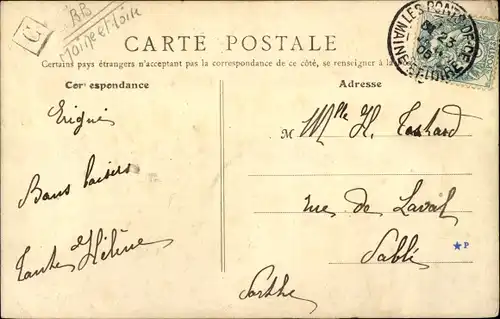 BB
Maine et Loire
CARTE POSTALE
Certains pays étrangers n'acceptant pas la correspondance de ce côté, se renseigner à la
Correspondance
Adresse
Erigné
Bons baisers
Tante Hélène
M lle H. Tachard
rue de Laval
Sablé
Sarthe
LES PONTS-DE-CÉ
MAINE-ET-LOIRE
23
P